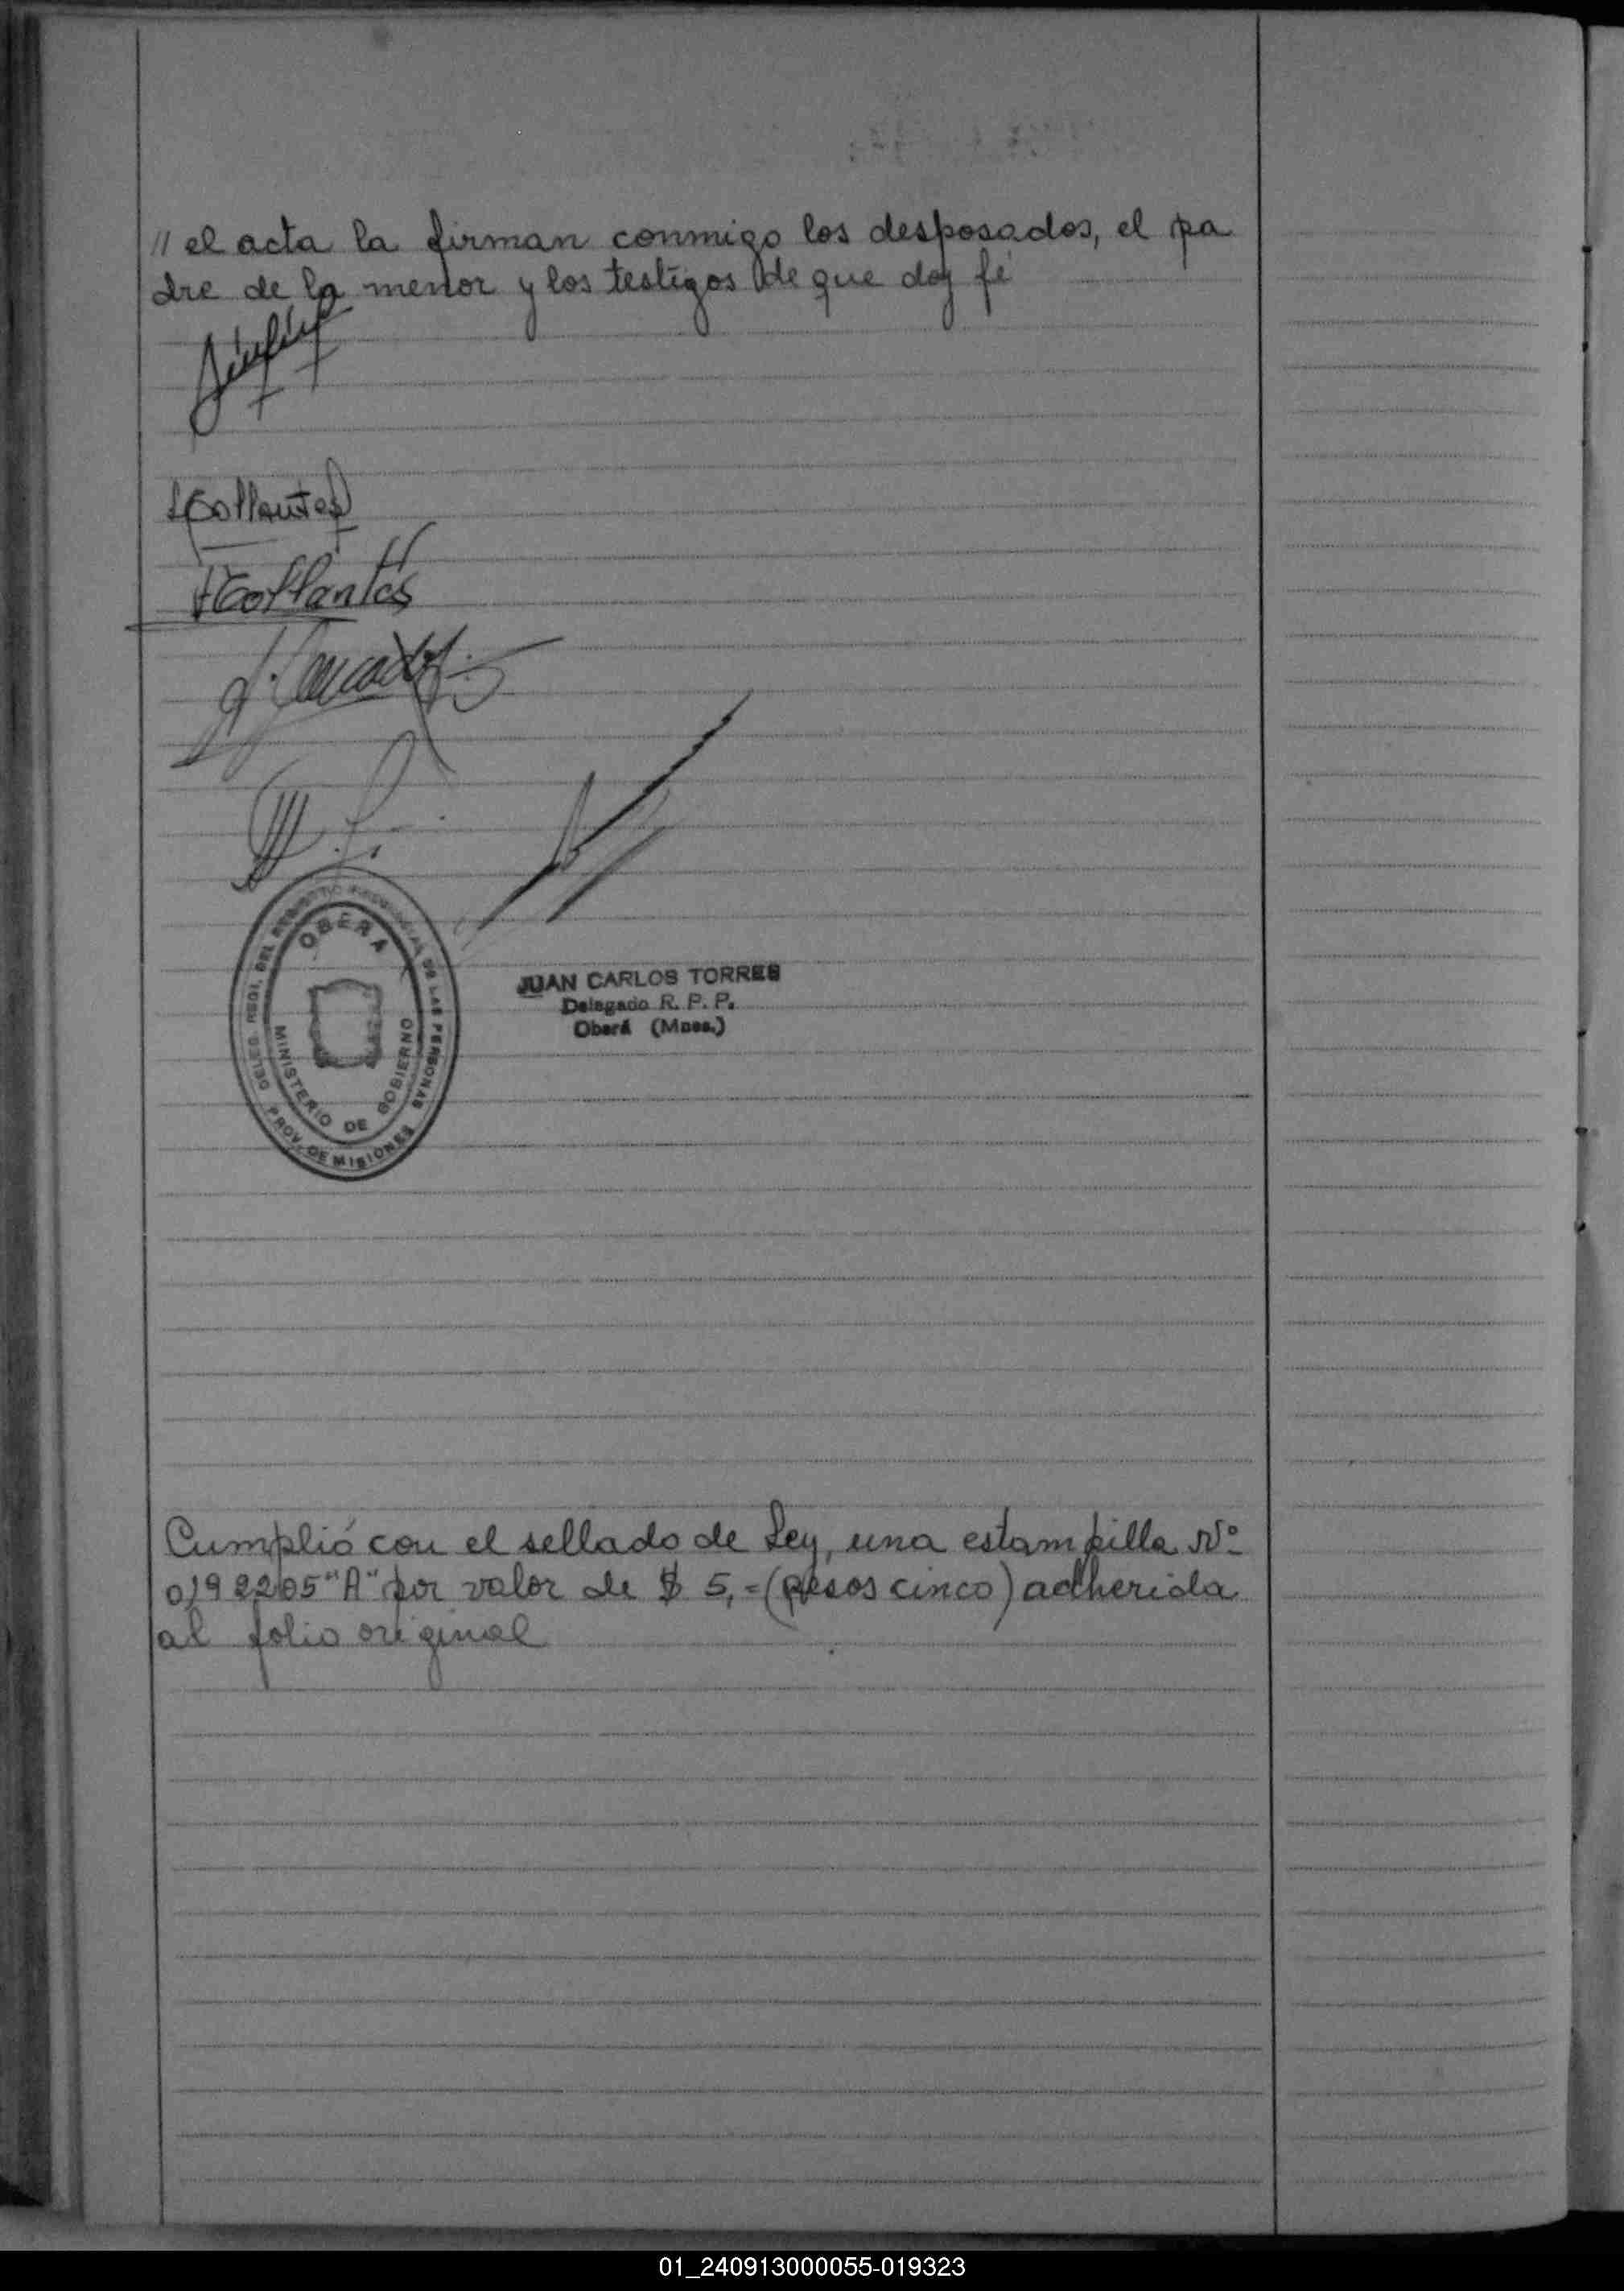 // el acta la firman conmigo los desposados, el pa
dre de la menor y los testigos de que doy fé
Collantes
Collantes
DELEG. RGDI. DEL REGISTRO PROVINCIAL DE LAS PERSONAS
OBERA
MINISTERIO DE GOBIERNO
PROV. DE MISIONES
JUAN CARLOS TORRES
Delegado R. P. P.
Oberá (Mnes.)
Cumplió con el sellado de Ley, una estampilla Nº
0192205 "A" por valor de $ 5,= (pesos cinco) adherida
al folio original
01_240913000055-019323